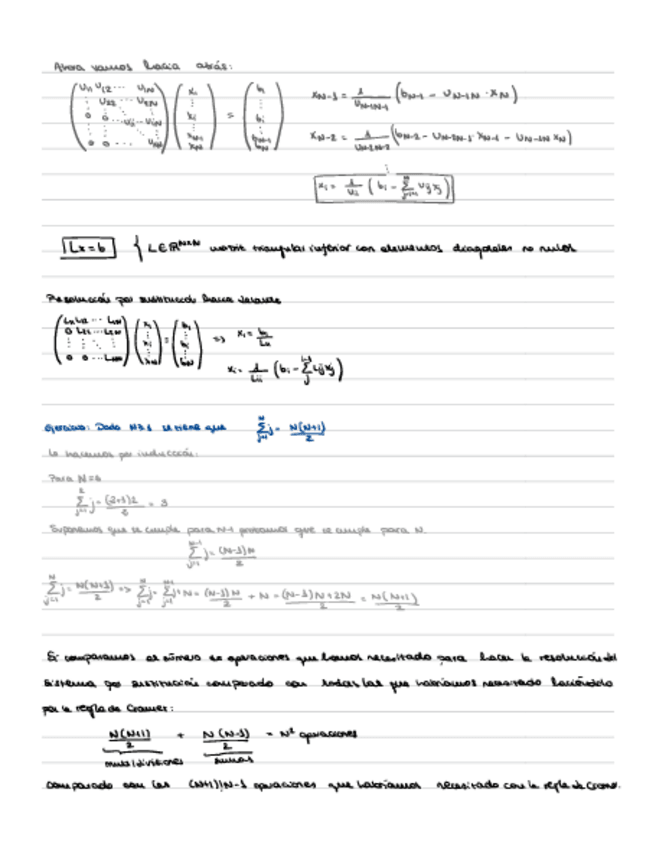 Ahora vamos hacia atrás:
( U11 U12 ... U1N ; U22 ... U2N ; 0 0 ... Uii ... UiN ; 0 0 ... UNN ) ( x1 ⋮ xi ⋮ xN-1 xN ) = ( b1 ⋮ bi ⋮ bN-1 bN )
xN-1 = 1/UN-1N-1 (bN-1 - UN-1N · xN)
xN-2 = 1/UN-2N-2 (bN-2 - UN-2N-1 · xN-1 - UN-2N xN)
⋮
xi = 1/Uii ( bi - Σ j=i+1 N Uij xj )
Lx = b { L ∈ ℝNxN matriz triangular inferior con elementos diagonales no nulos
Resolución por sustitución hacia delante
( L11 L12 ... L1N ; 0 L22 ... L2N ; ⋮ ⋮ ⋱ ⋮ ; 0 0 ... LNN ) ( x1 ⋮ xi ⋮ xN ) = ( b1 ⋮ bi ⋮ bN ) => x1 = b1/L11
xi = 1/Lii ( bi - Σ j i-1 Lij xj )
Ejercicio: Dado N≥1 se tiene que Σ j=1 N j = N(N+1)/2
Lo hacemos por inducción:
Σ j=1 2 j = (2+1)2/2 = 3
Suponemos que se cumple para N-1 probamos que se cumple para N.
Σ j=1 N-1 j = (N-1)N/2
Σ j=1 N j = N(N+1)/2 => Σ j=1 N j = Σ j=1 N-1 j + N = (N-1)N/2 + N = (N-1)N+2N/2 = N(N+1)/2
Si comparamos el número de operaciones que hemos necesitado para hacer la resolución del
sistema por sustitución comparado con todas las que habríamos necesitado haciéndolo
por la regla de Cramer:
N(N+1)/2 + N(N-1)/2 = N² operaciones
mult/divisiones sumas
comparado con las (N+1)!N-1 operaciones que habríamos necesitado con la regla de Cramer.